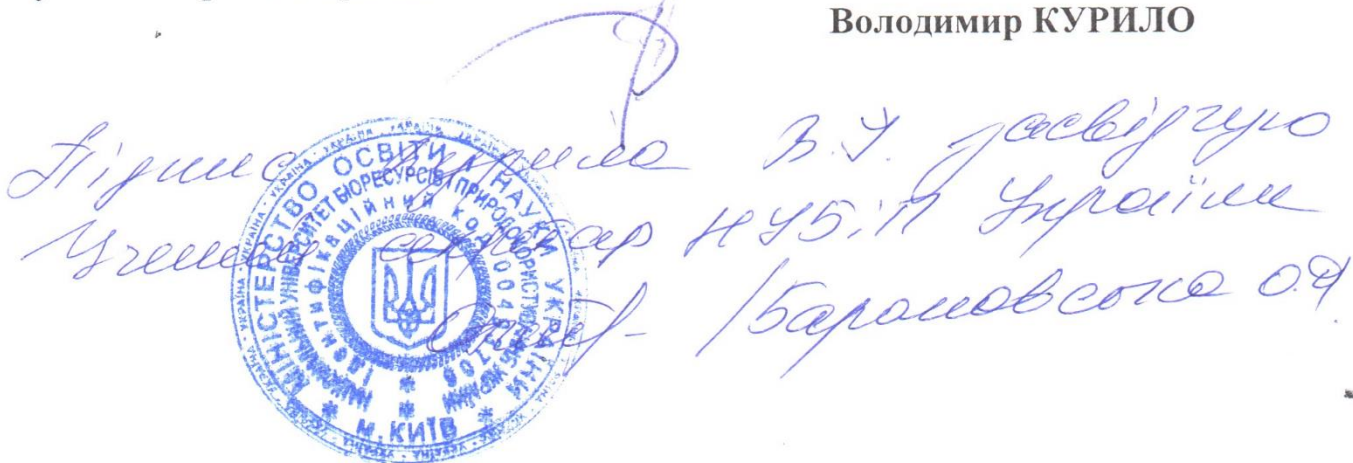 Володимир КУРИЛО
Підпис Курила В.І. засвідчую
Учений секретар НУБіП України
/Барановська О.Д.
УКРАЇНА · УКРАЇНА · УКРАЇНА · УКРАЇНА
МІНІСТЕРСТВО ОСВІТИ І НАУКИ УКРАЇНИ
НАЦІОНАЛЬНИЙ УНІВЕРСИТЕТ БІОРЕСУРСІВ І ПРИРОДОКОРИСТУВАННЯ УКРАЇНИ
Ідентифікаційний код
* М. КИЇВ *